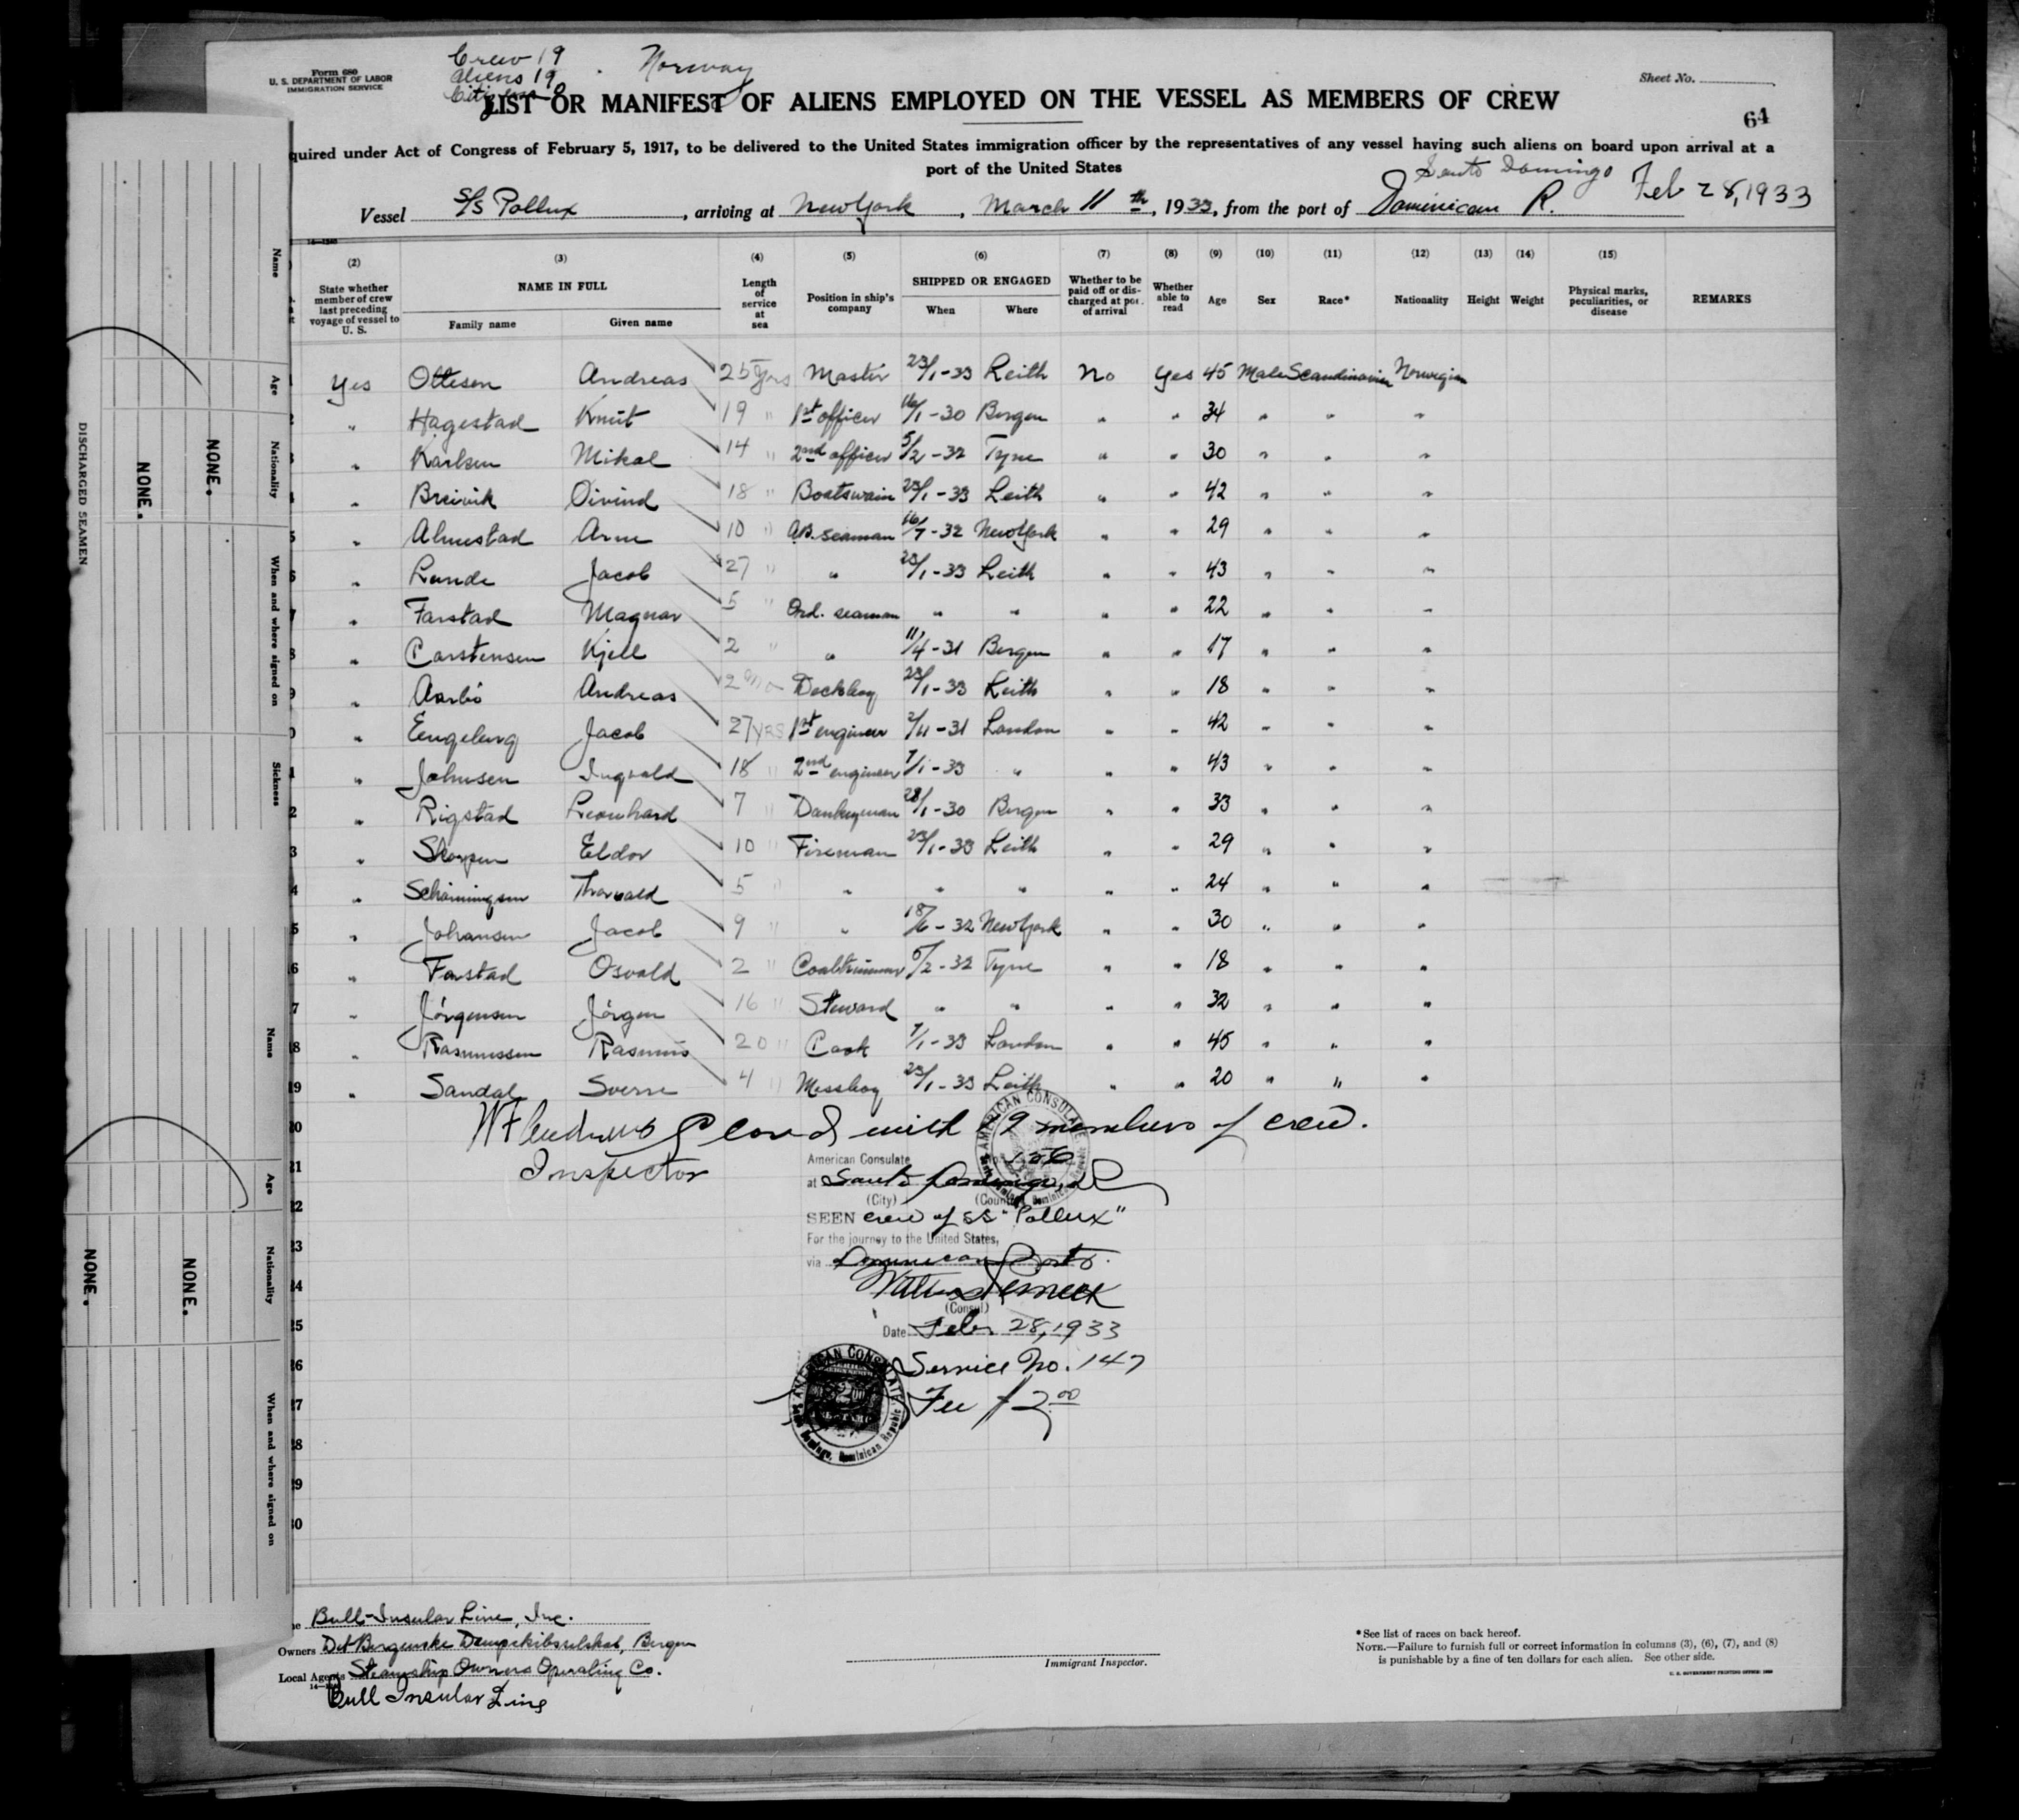 Form 680
U. S. DEPARTMENT OF LABOR
IMMIGRATION SERVICE
Crew 19
Aliens 19
Citizens 0
Norway
Sheet No.
LIST OR MANIFEST OF ALIENS EMPLOYED ON THE VESSEL AS MEMBERS OF CREW
64
quired under Act of Congress of February 5, 1917, to be delivered to the United States immigration officer by the representatives of any vessel having such aliens on board upon arrival at a
port of the United States
Santo Domingo
Vessel S/S Pollux, arriving at New York, March 11th, 1933, from the port of Dominican R. Feb 28, 1933
(2) (3) (4) (5) (6) (7) (8) (9) (10) (11) (12) (13) (14) (15)
State whether member of crew last preceding voyage of vessel to U. S.
NAME IN FULL
Family name Given name
Length of service at sea
Position in ship's company
SHIPPED OR ENGAGED
When Where
Whether to be paid off or discharged at port of arrival
Whether able to read
Age Sex Race* Nationality Height Weight
Physical marks, peculiarities, or disease
REMARKS
Yes Ottesen Andreas 25 yrs Master 23/1-33 Leith No Yes 45 Male Scandinavian Norwegian
" Hagestad Knut 19 " 1st officer 16/1-30 Bergen " " 34 " " "
" Karlsen Mikal 14 " 2nd officer 5/2-32 Tyne " " 30 " " "
" Breivik Oivind 18 " Boatswain 23/1-33 Leith " " 42 " " "
" Almestad Arne 10 " AB. seaman 16/7-32 New York " " 29 " " "
" Lunde Jacob 27 " " 23/1-33 Leith " " 43 " " "
" Farstad Magnar 5 " Ord. seaman " " " " 22 " " "
" Carstensen Kjell 2 " " 11/4-31 Bergen " " 17 " " "
" Aarbö Andreas 2 mo Deckboy 23/1-33 Leith " " 18 " " "
" Engeberg Jacob 27 yrs 1st engineer 2/11-31 London " " 42 " " "
" Johnsen Ingvald 18 " 2nd engineer 7/1-33 " " " 43 " " "
" Rigstad Leonhard 7 " Donkeyman 28/1-30 Bergen " " 33 " " "
" Eldor 10 " Fireman 23/1-33 Leith " " 29 " " "
" Schönningsen Thorvald 5 " " " " " " 24 " " "
" Johansen Jacob 9 " " 18/6-32 New York " " 30 " " "
" Farstad Osvald 2 " Coaltrimmer 5/2-32 Tyne " " 18 " " "
" Jörgensen Jörgen 16 " Steward " " " " 32 " " "
" Rasmussen Rasmus 20 " Cook 7/1-33 London " " 45 " " "
" Sandal Sverre 4 " Messboy 23/1-33 Leith " " 20 " " "
Closed with 19 members of crew.
Inspector
AMERICAN CONSULATE
American Consulate No. 156
at Santo Domingo, DR
(City) (Country)
SEEN crew of SS "Pollux"
For the journey to the United States,
via Dominican Ports.
(Consul)
Date Feb. 28, 1933
Service No. 147
Fee $2.00
AMERICAN CONSULATE
Santo Domingo, Dominican Republic
Bull-Insular Line, Inc.
Owners Det Bergenske Dampskibsselskab, Bergen
Local Agents Steamship Owners Operating Co.
Bull Insular Line
Immigrant Inspector.
*See list of races on back hereof.
NOTE.—Failure to furnish full or correct information in columns (3), (6), (7), and (8)
is punishable by a fine of ten dollars for each alien. See other side.
U. S. GOVERNMENT PRINTING OFFICE
DISCHARGED SEAMEN
Name
Age
Nationality
When and where signed on
Sickness
NONE.
NONE.
Name
Age
Nationality
When and where signed on
NONE.
NONE.